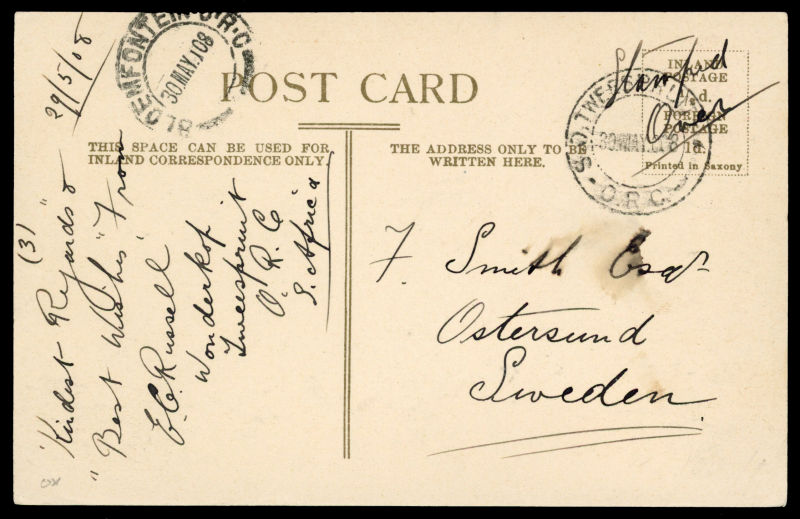 POST CARD
THIS SPACE CAN BE USED FOR
INLAND CORRESPONDENCE ONLY.
THE ADDRESS ONLY TO BE
WRITTEN HERE.
INLAND
POSTAGE
½d.
FOREIGN
POSTAGE
1d.
Printed in Saxony
Stamped
Over
BLOEMFONTEIN·O·R·C
30 MAY 08
TWEESPRUIT
30 MAY 08
O.R.C.
29/5/08
(3)
"Kindest Regards &
"Best Wishes" From
E. C. Russell
Wonderkop
Tweespruit
O. R. C
S. Africa
F. Smith Esqr
Ostersund
Sweden